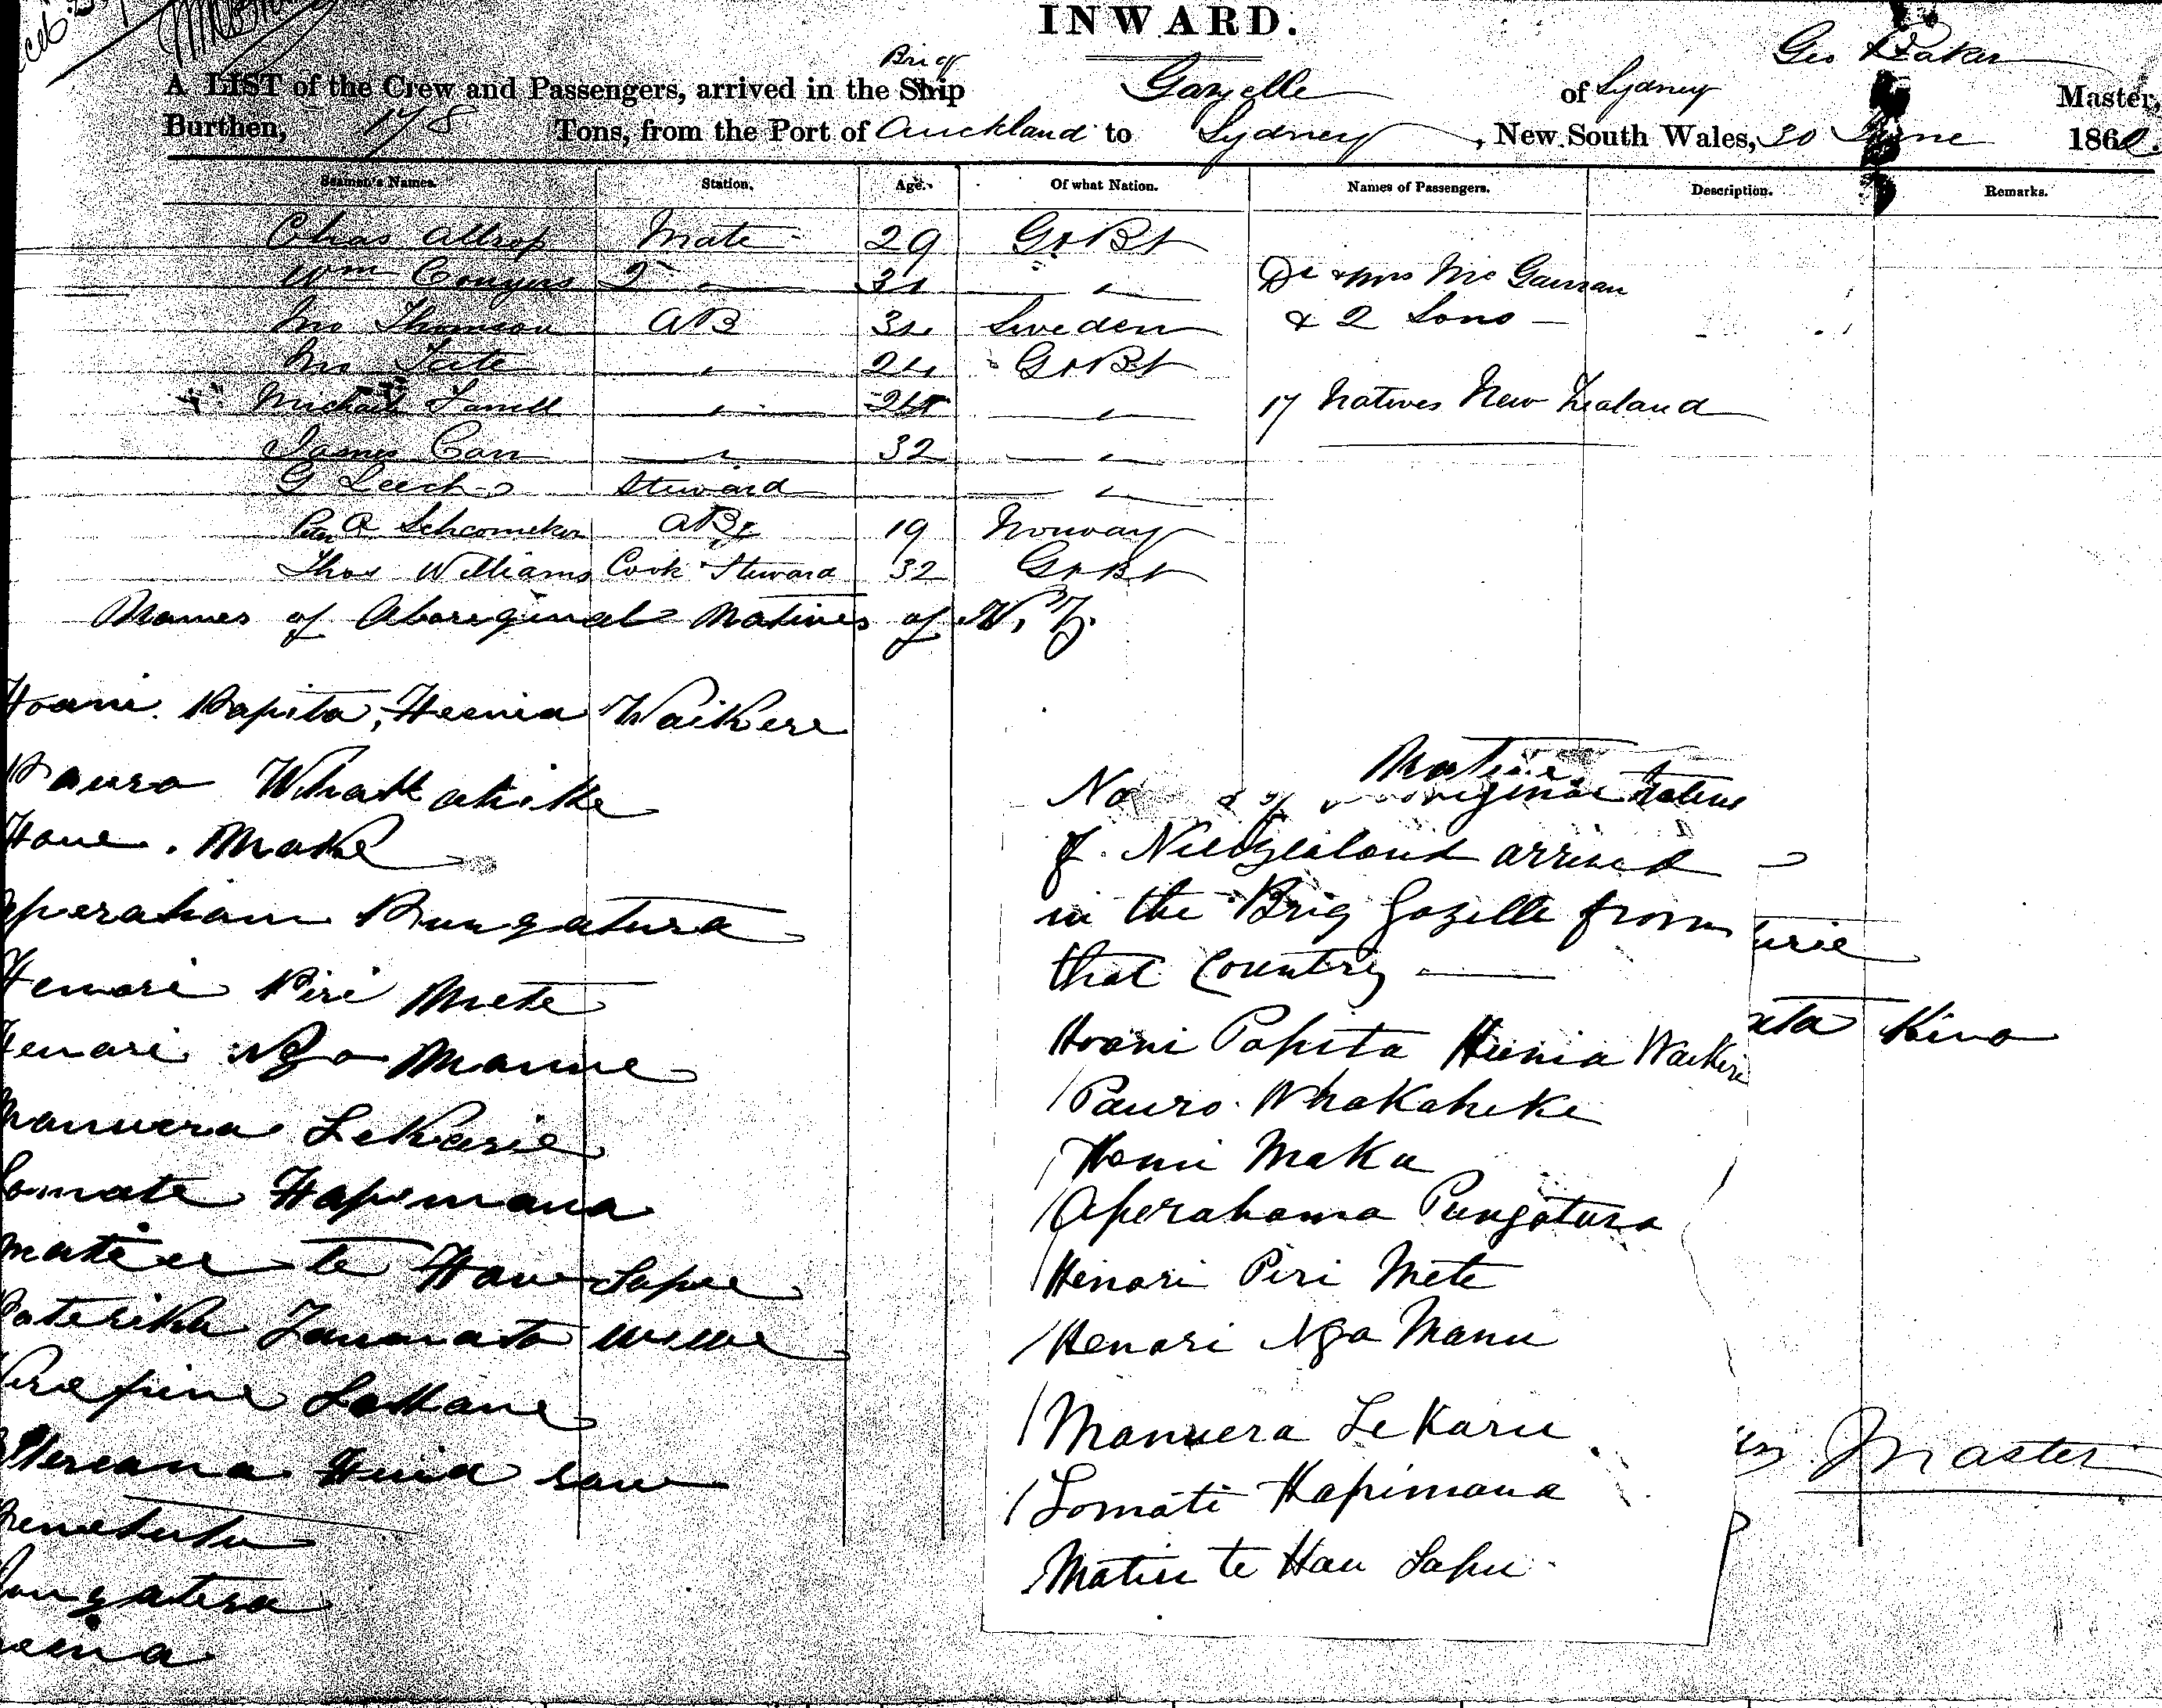 INWARD.
Geo Baker
Brig
A LIST of the Crew and Passengers, arrived in the Ship Gazelle of Sydney Master,
Burthen, 178 Tons, from the Port of Auckland to Sydney, New South Wales, 30 June 1862.
Seamen's Names. Station. Age. Of what Nation. Names of Passengers. Description. Remarks.
Chas Allsop Mate 29 Gt Bt
Wm Conyers 2 " 31 "
Dr & Mrs Mc Gauran
Jno Thomson AB 34 Sweden & 2 Sons
Jno Tate " 24 Gt Bt
Michael Farrell " 24 " 17 Natives New Zealand
James Carr " 32 "
G Leech Steward "
Peter A AB 19 Norway
Thos Williams Cook Steward 32 Gt Bt
Names of Aboreginal Natives of N. Z.
Hoani Papita, Heenia Waikere
Pauro Whakahike
Hone. Make
Aperaham Pungatura
Henari Piri Mete
Henari Nga Manue
Manuera LeKarie
Lomate Hapimana
Matieu te Hau Lapue
Paterika Lanumata wewe
Lakane
Huia rau
Native
of Aboriginal Natives
of New Zealand arrived
in the Brig Gazelle from
that Country
Hoani Papita Hunia Waikere
Pauro Whakaheke
Homi Maka
Aperahama Pungatura
Henari Piri Mete
Henari Nga Manu
Manuera Le Karu
Lomati Hapimana
Matiu te Hau Lapu
urie
ata Kino
Master